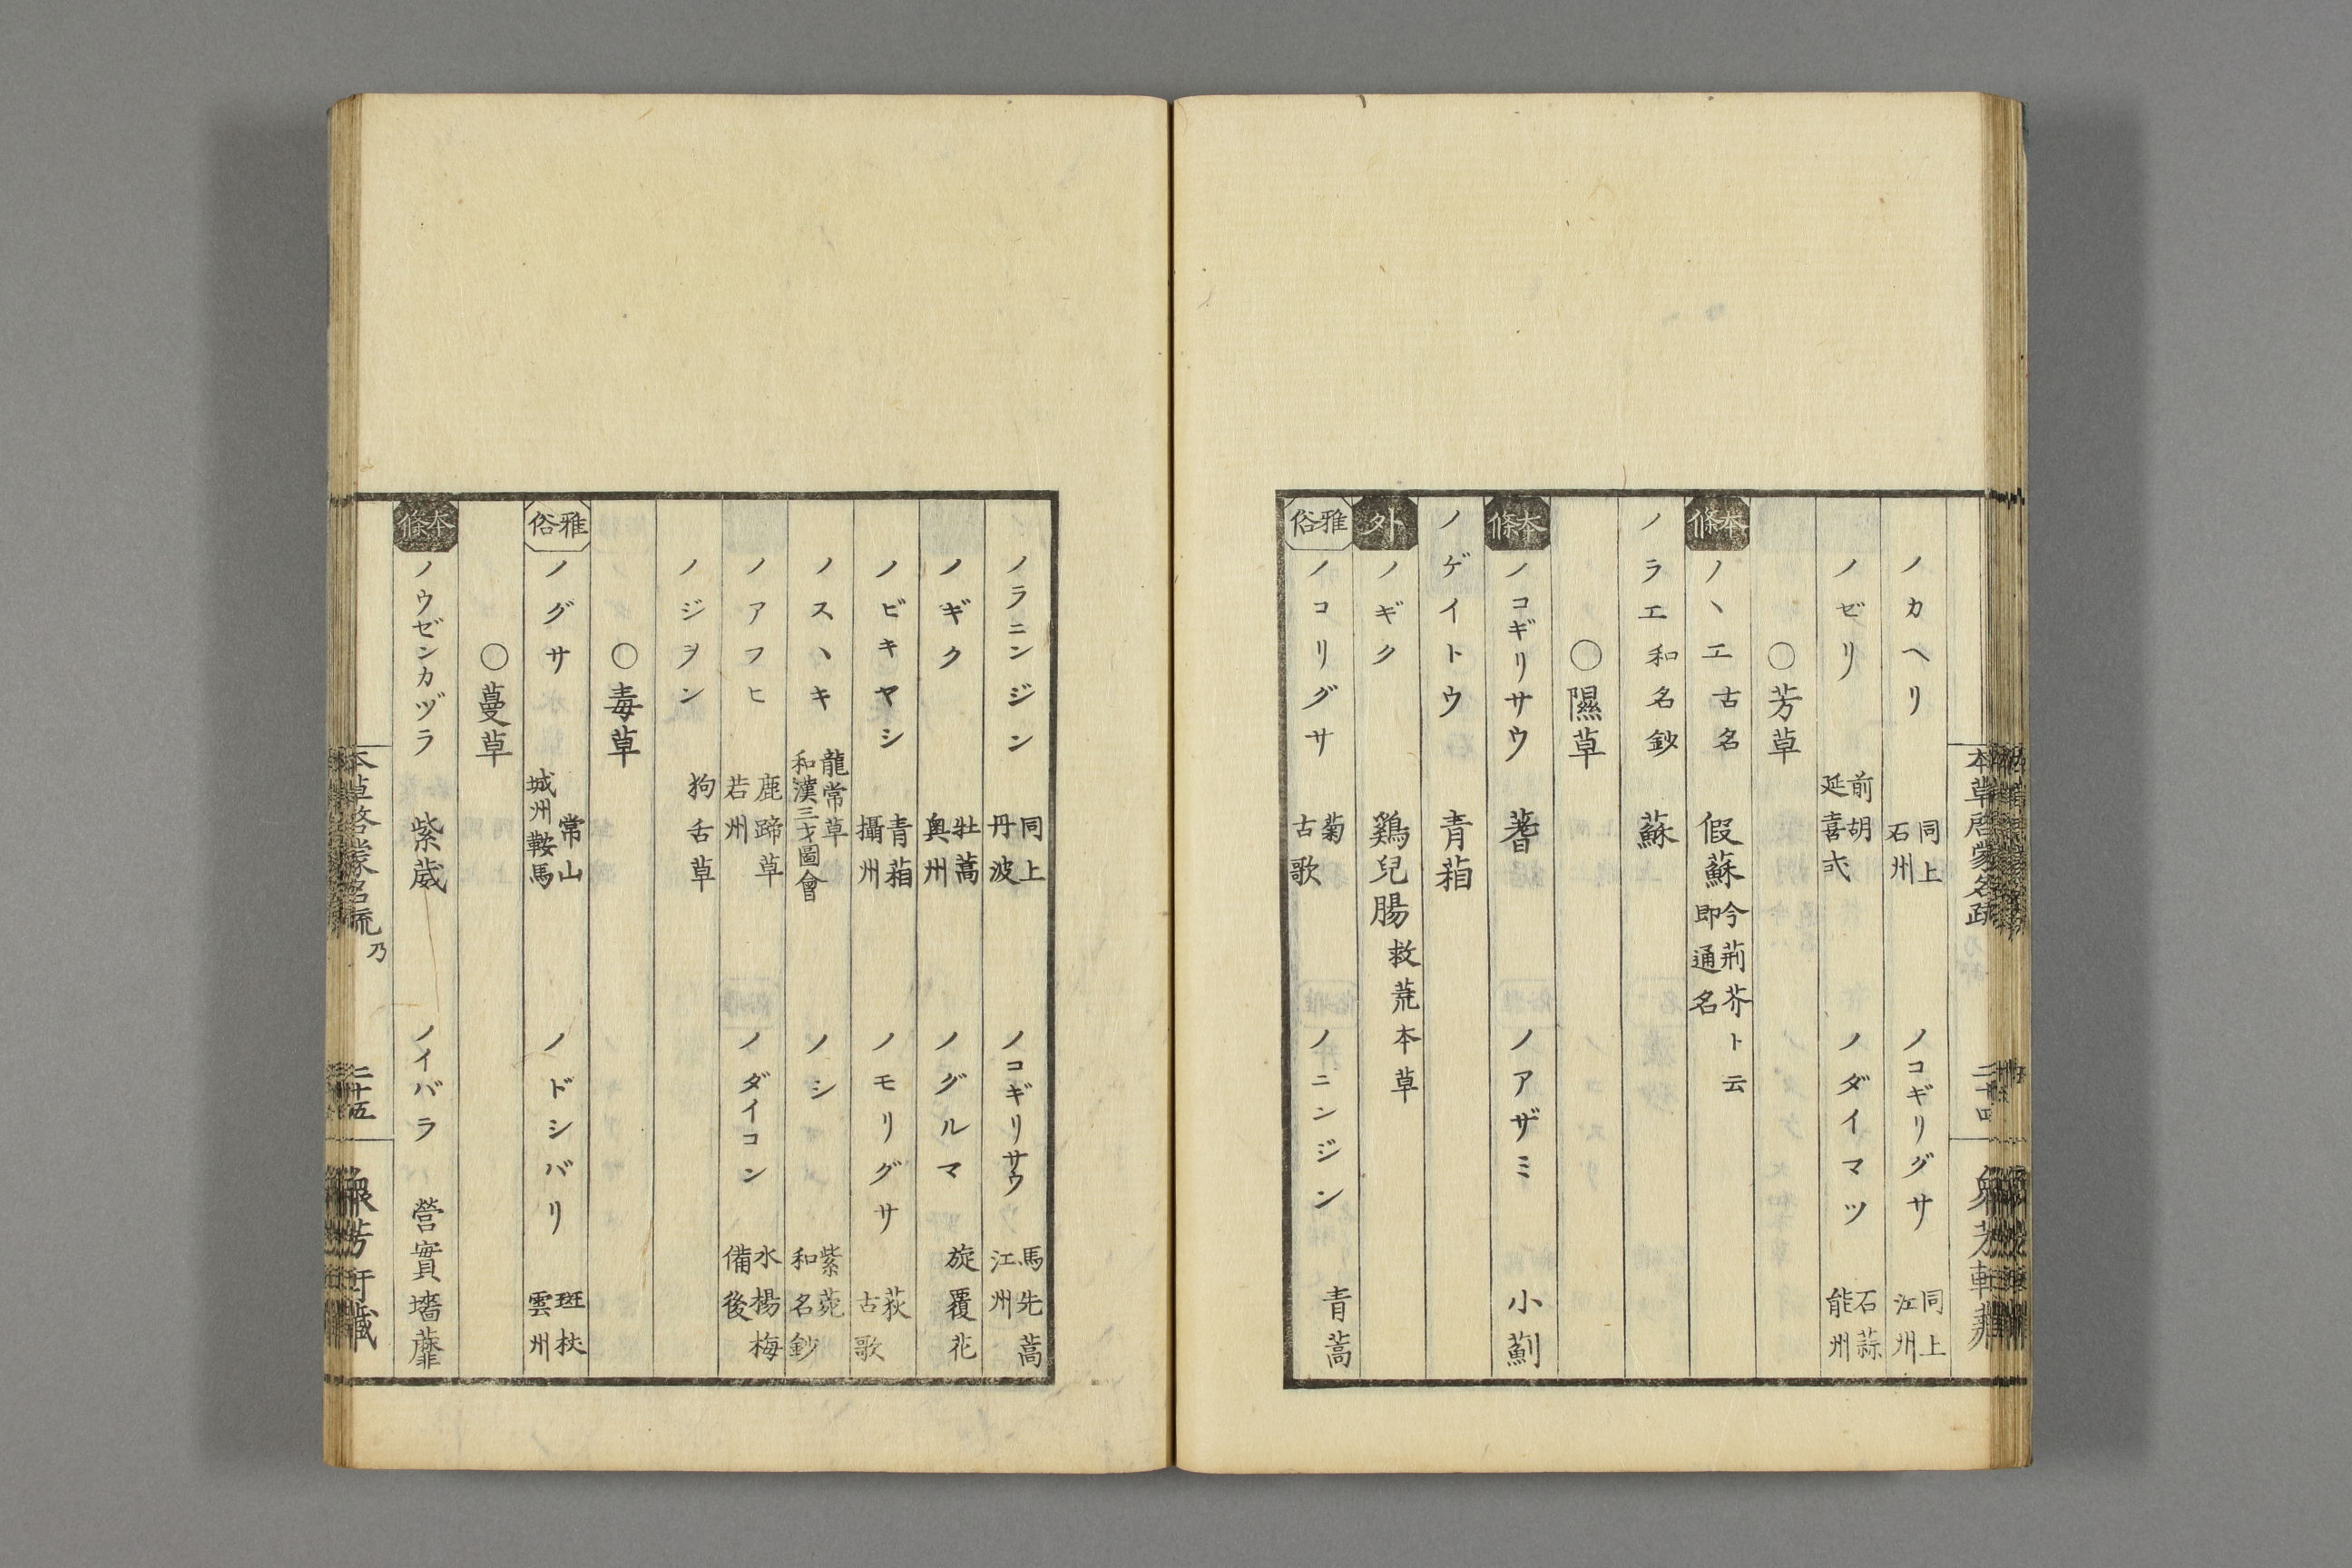 本草啓蒙名疏
二十四
ノカヘリ 同上 石州 ノコギリグサ 同上 江州
ノゼリ 前胡 延喜式 ノダイマツ 石蒜 能州
○芳草
本條 ノヽエ 古名 假蘇 今荊芥ト云 即通名
ノラエ 和名鈔 蘇
○隰草
本條 ノコギリサウ 蓍 ノアザミ 小薊
ノゲイトウ 青葙
外 ノギク 鷄兒腸 救荒本草
雅俗 ノコリグサ 菊 古歌 ノニンジン 青蒿
ノラニンジン 同上 丹波 ノコギリサウ 馬先蒿 江州
ノギク 牡蒿 奥州 ノグルマ 旋覆花
ノビキヤシ 青葙 攝州 ノモリグサ 荻 古歌
ノスヽキ 龍常草 和漢三才圖會 ノシ 紫菀 和名鈔
ノアフヒ 鹿蹄草 若州 ノダイコン 水楊梅 備後
ノジヲン 狗舌草
○毒草
雅俗 ノグサ 常山 城州鞍馬 ノドシバリ 斑杖 雲州
○蔓草
本條 ノウゼンカヅラ 紫葳 ノイバラ 營實墻蘼
本草啓蒙名疏 乃
二十五